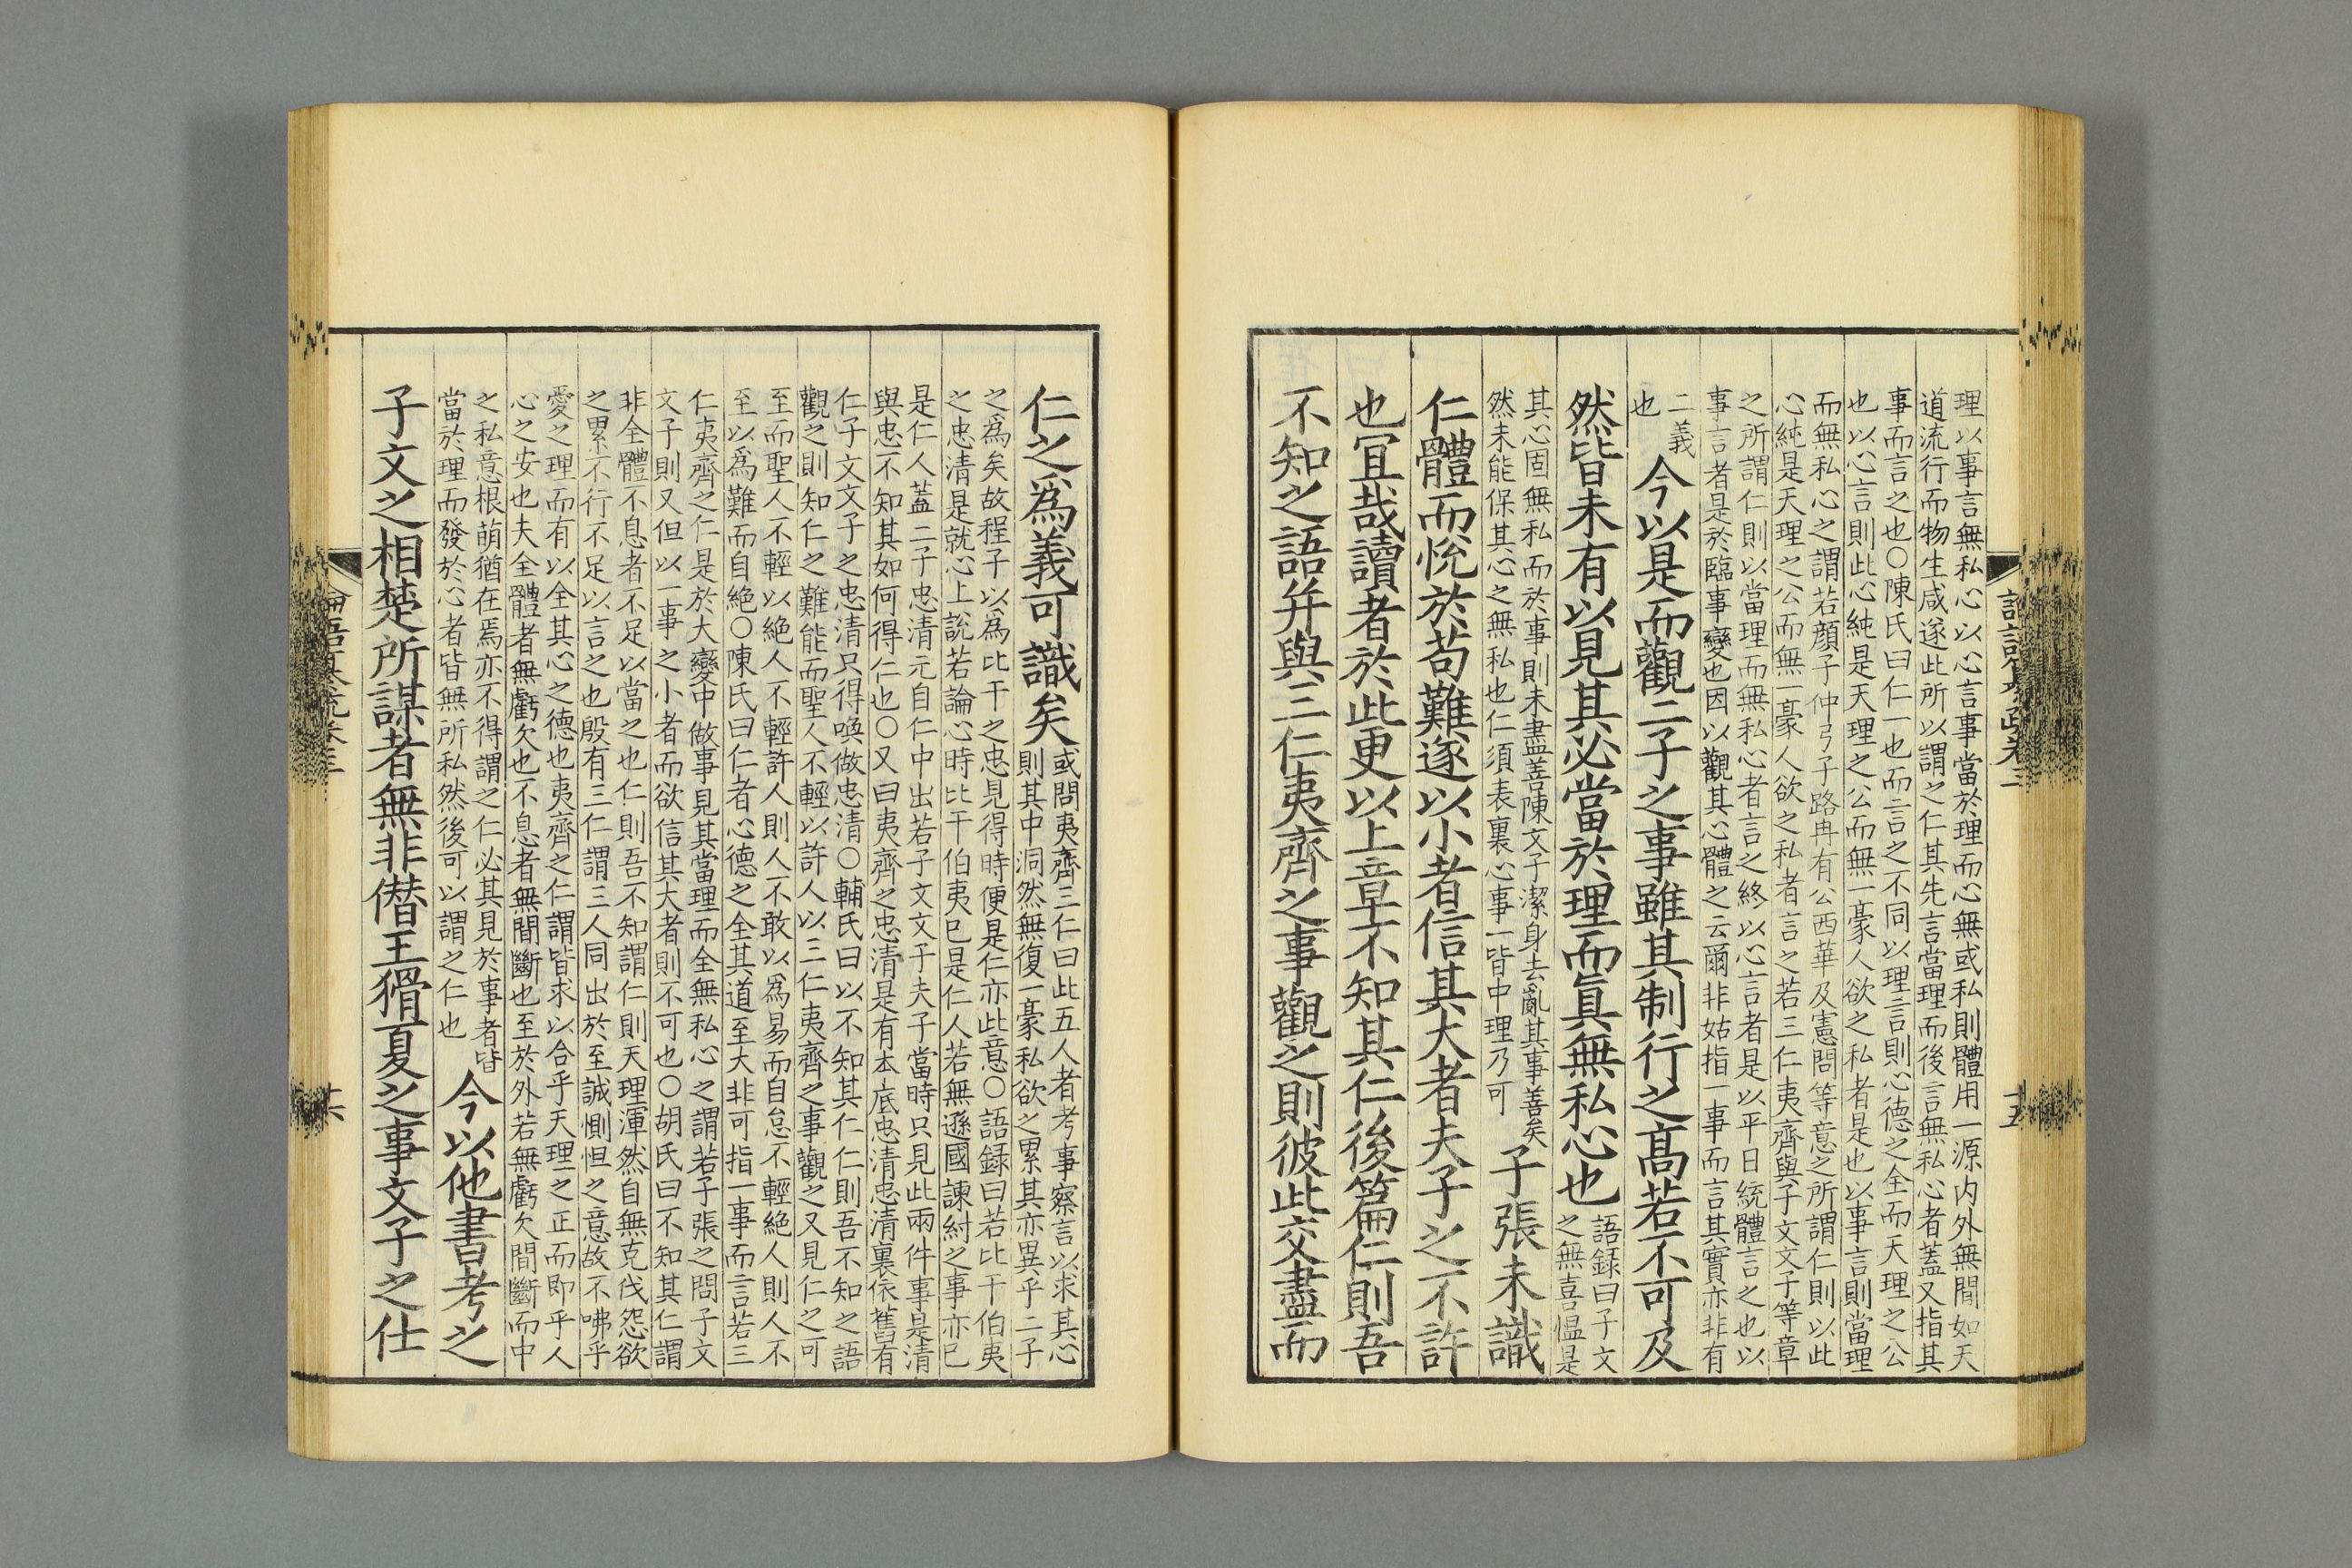 理以事言無私心以心言事當於理而心無或私則體用一源內外無間如天
道流行而物生咸遂此所以謂之仁其先言當理而後言無私心者蓋又指其
事而言之也○陳氏曰仁一也而言之不同以理言則心德之全而天理之公
也以心言則此心純是天理之公而無一豪人欲之私者是也以事言則當理
而無私心之謂若顏子仲弓子路冉有公西華及憲問等意之所謂仁則以此
心純是天理之公而無一豪人欲之私者言之若三仁夷齊與子文文子等章
之所謂仁則以當理而無私心者言之終以心言者是以平日統體言之也以
事言者是於臨事變也因以觀其心體之云爾非姑指一事而言其實亦非有
二義
也
今以是而觀二子之事雖其制行之高若不可及
然皆未有以見其必當於理而眞無私心也
語録曰子文
之無喜愠是
其心固無私而於事則未盡善陳文子潔身去亂其事善矣
然未能保其心之無私也仁須表裏心事一皆中理乃可
子張未識
仁體而悅於苟難遂以小者信其大者夫子之不許
也宜哉讀者於此更以上章不知其仁後篇仁則吾
不知之語并與三仁夷齊之事觀之則彼此交盡而
仁之爲義可識矣
或問夷齊三仁曰此五人者考事察言以求其心
則其中洞然無復一豪私欲之累其亦異乎二子
之爲矣故程子以爲比干之忠見得時便是仁亦此意○語録曰若比干伯夷
之忠清是就心上說若論心時比干伯夷已是仁人若無遜國諫紂之事亦已
是仁人蓋二子忠清元自仁中出若子文文子夫子當時只見此兩件事是清
與忠不知其如何得仁也○又曰夷齊之忠清是有本底忠清忠清裏依舊有
仁子文文子之忠清只得喚做忠清○輔氏曰以不知其仁仁則吾不知之語
觀之則知仁之難能而聖人不輕以許人以三仁夷齊之事觀之又見仁之可
至而聖人不輕以絶人不輕許人則人不敢以爲易而自怠不輕絶人則人不
至以爲難而自絶○陳氏曰仁者心德之全其道至大非可指一事而言若三
仁夷齊之仁是於大變中做事見其當理而全無私心之謂若子張之問子文
文子則又但以一事之小者而欲信其大者則不可也○胡氏曰不知其仁謂
非全體不息者不足以當之也仁則吾不知謂仁則天理渾然自無克伐怨欲
之累不行不足以言之也殷有三仁謂三人同出於至誠惻怛之意故不咈乎
愛之理而有以全其心之德也夷齊之仁謂皆求以合乎天理之正而即乎人
心之安也夫全體者無虧欠也不息者無間斷也至於外若無虧欠間斷而中
之私意根萌猶在焉亦不得謂之仁必其見於事者皆
當於理而發於心者皆無所私然後可以謂之仁也
今以他書考之
子文之相楚所謀者無非僭王猾夏之事文子之仕